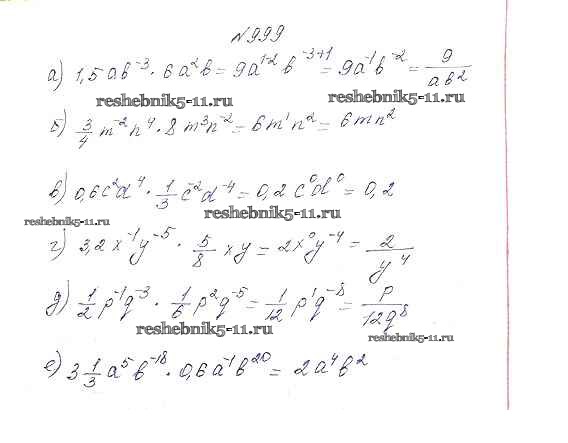 №999
а) 1,5ab⁻³ · 6a²b = 9a¹⁻² b⁻³⁺¹ = 9a⁻¹b⁻² = 9/(ab²)
reshebnik5-11.ru reshebnik5-11.ru
б) 3/4 m⁻²n⁴ · 8m³n⁻² = 6m¹n² = 6mn²
в) 0,6c²d⁴ · 1/3 c⁻²d⁻⁴ = 0,2c⁰d⁰ = 0,2
reshebnik5-11.ru reshebnik5-11.ru
г) 3,2x⁻¹y⁻⁵ · 5/8 xy = 2x⁰y⁻⁴ = 2/y⁴
д) 1/2 p⁻¹q⁻³ · 1/6 p²q⁻⁵ = 1/12 p¹q⁻⁸ = p/(12q⁸)
reshebnik5-11.ru reshebnik5-11.ru
е) 3 1/3 a⁵b⁻¹⁸ · 0,6a⁻¹b²⁰ = 2a⁴b²